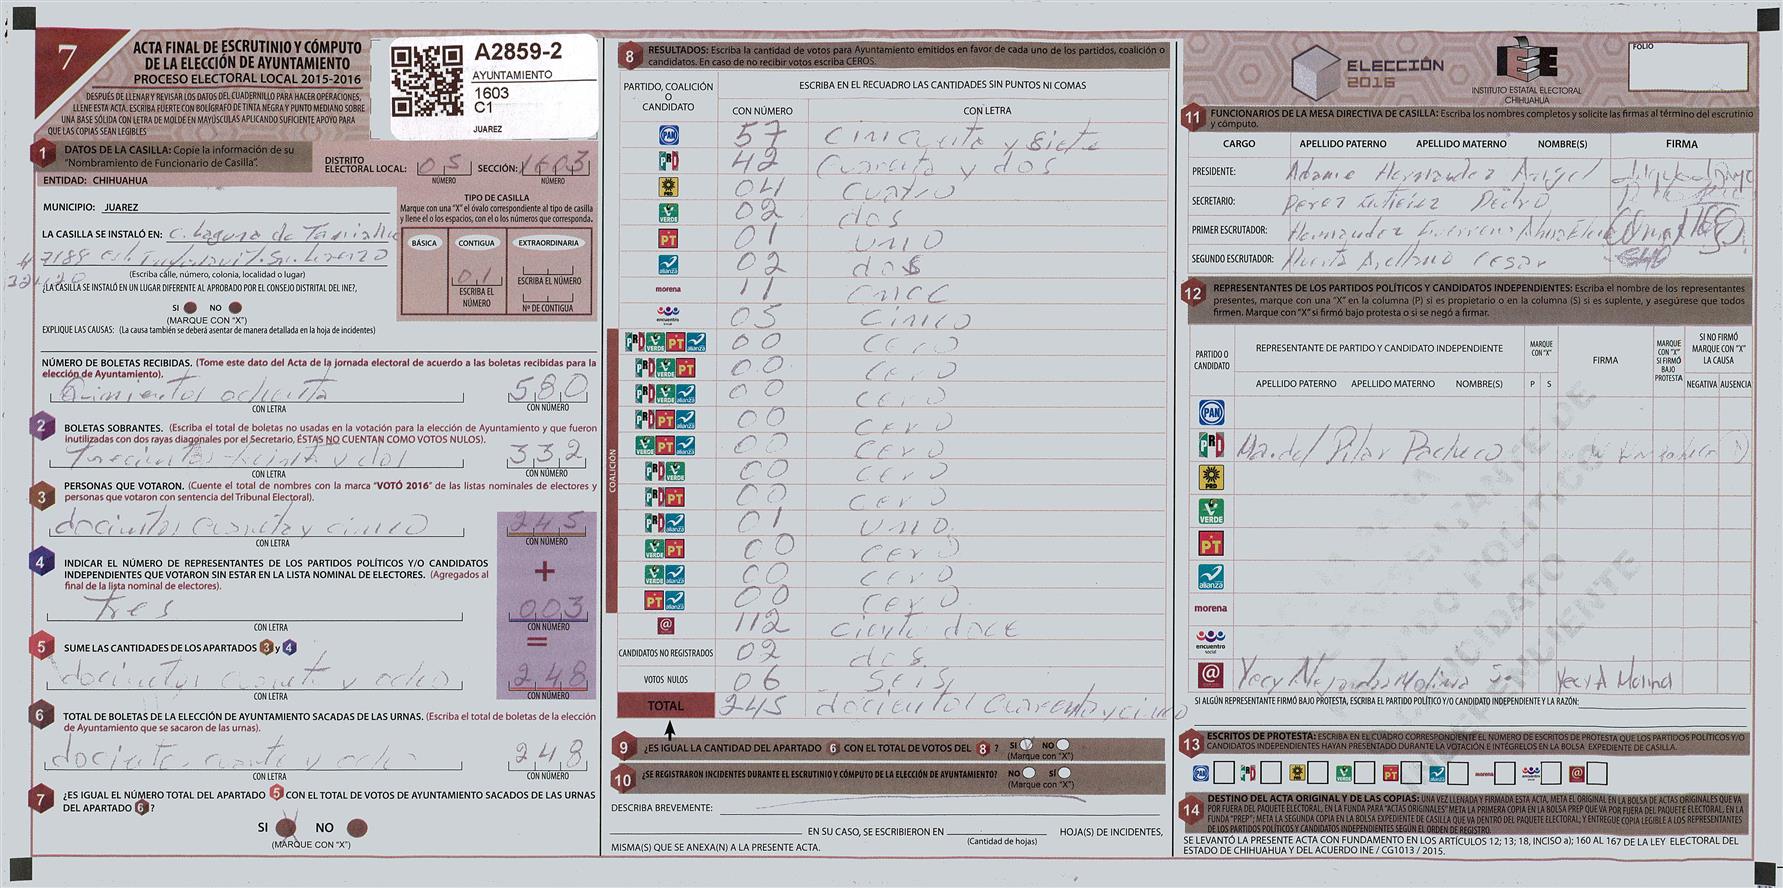 7
ACTA FINAL DE ESCRUTINIO Y CÓMPUTO
DE LA ELECCIÓN DE AYUNTAMIENTO
PROCESO ELECTORAL LOCAL 2015-2016
DESPUÉS DE LLENAR Y REVISAR LOS DATOS DEL CUADERNILLO PARA HACER OPERACIONES,
LLENE ESTA ACTA. ESCRIBA FUERTE CON BOLÍGRAFO DE TINTA NEGRA Y PUNTO MEDIANO SOBRE
UNA BASE SÓLIDA CON LETRA DE MOLDE EN MAYÚSCULAS APLICANDO SUFICIENTE APOYO PARA
QUE LAS COPIAS SEAN LEGIBLES
A2859-2
AYUNTAMIENTO
1603
C1
JUAREZ
1 DATOS DE LA CASILLA: Copie la información de su
"Nombramiento de Funcionario de Casilla".
DISTRITO
ELECTORAL LOCAL: 05 SECCIÓN: 1603
NÚMERO NÚMERO
ENTIDAD: CHIHUAHUA
MUNICIPIO: JUAREZ
LA CASILLA SE INSTALÓ EN: C. Laguna de
(Escriba calle, número, colonia, localidad o lugar)
¿LA CASILLA SE INSTALÓ EN UN LUGAR DIFERENTE AL APROBADO POR EL CONSEJO DISTRITAL DEL INE?,
SI NO
(MARQUE CON "X")
EXPLIQUE LAS CAUSAS: (La causa también se deberá asentar de manera detallada en la hoja de incidentes)
TIPO DE CASILLA
Marque con una "X" el óvalo correspondiente al tipo de casilla
y llene el o los espacios, con el o los números que corresponda.
BÁSICA CONTIGUA EXTRAORDINARIA
01
ESCRIBA EL NÚMERO
ESCRIBA EL NÚMERO
Nº DE CONTIGUA
NÚMERO DE BOLETAS RECIBIDAS. (Tome este dato del Acta de la jornada electoral de acuerdo a las boletas recibidas para la
elección de Ayuntamiento).
Quinientos ochenta 580
CON LETRA CON NÚMERO
2 BOLETAS SOBRANTES. (Escriba el total de boletas no usadas en la votación para la elección de Ayuntamiento y que fueron
inutilizadas con dos rayas diagonales por el Secretario, ÉSTAS NO CUENTAN COMO VOTOS NULOS).
Trecientos treinta y dos 332
CON LETRA CON NÚMERO
3 PERSONAS QUE VOTARON. (Cuente el total de nombres con la marca "VOTÓ 2016" de las listas nominales de electores y
personas que votaron con sentencia del Tribunal Electoral).
docientos cuarenta y cinco 245
CON LETRA CON NÚMERO
4 INDICAR EL NÚMERO DE REPRESENTANTES DE LOS PARTIDOS POLÍTICOS Y/O CANDIDATOS
INDEPENDIENTES QUE VOTARON SIN ESTAR EN LA LISTA NOMINAL DE ELECTORES. (Agregados al
final de la lista nominal de electores).
+
Tres 003
CON LETRA CON NÚMERO
=
5 SUME LAS CANTIDADES DE LOS APARTADOS 3 y 4
docientos cuarenta y ocho 248
CON LETRA CON NÚMERO
6 TOTAL DE BOLETAS DE LA ELECCIÓN DE AYUNTAMIENTO SACADAS DE LAS URNAS. (Escriba el total de boletas de la elección
de Ayuntamiento que se sacaron de las urnas).
docientos cuarenta y ocho 248
CON LETRA CON NÚMERO
7 ¿ES IGUAL EL NÚMERO TOTAL DEL APARTADO 5 CON EL TOTAL DE VOTOS DE AYUNTAMIENTO SACADOS DE LAS URNAS
DEL APARTADO 6?
SI NO
(MARQUE CON "X")
8 RESULTADOS: Escriba la cantidad de votos para Ayuntamiento emitidos en favor de cada uno de los partidos, coalición o
candidatos. En caso de no recibir votos escriba CEROS.
PARTIDO, COALICIÓN
O
CANDIDATO
ESCRIBA EN EL RECUADRO LAS CANTIDADES SIN PUNTOS NI COMAS
CON NÚMERO CON LETRA
PAN 57 cincuenta y siete
PRI 42 cuarenta y dos
PRD 04 cuatro
VERDE 02 dos
PT 01 uno
alianza 02 dos
morena 11 once
encuentro social 05 cinco
COALICIÓN
PRI VERDE PT alianza 00 cero
PRI VERDE PT 00 cero
PRI VERDE alianza 00 cero
PRI PT alianza 00 cero
VERDE PT alianza 00 cero
PRI VERDE 00 cero
PRI PT 00 cero
PRI alianza 01 uno
VERDE PT 00 cero
VERDE alianza 00 cero
PT alianza 00 cero
@ 112 ciento doce
CANDIDATOS NO REGISTRADOS 02 dos
VOTOS NULOS 06 seis
TOTAL 245 docientos cuarenta y cinco
9 ¿ES IGUAL LA CANTIDAD DEL APARTADO 6 CON EL TOTAL DE VOTOS DEL 8? SI NO
(Marque con "X")
10 ¿SE REGISTRARON INCIDENTES DURANTE EL ESCRUTINIO Y CÓMPUTO DE LA ELECCIÓN DE AYUNTAMIENTO? NO SÍ
(Marque con "X")
DESCRIBA BREVEMENTE:
EN SU CASO, SE ESCRIBIERON EN HOJA(S) DE INCIDENTES,
(Cantidad de hojas)
MISMA(S) QUE SE ANEXA(N) A LA PRESENTE ACTA.
ELECCIÓN
2016
IEE
INSTITUTO ESTATAL ELECTORAL
CHIHUAHUA
FOLIO
11 FUNCIONARIOS DE LA MESA DIRECTIVA DE CASILLA: Escriba los nombres completos y solicite las firmas al término del escrutinio
y cómputo.
CARGO APELLIDO PATERNO APELLIDO MATERNO NOMBRE(S) FIRMA
PRESIDENTE: Adame Hernandez Angel
SECRETARIO: Perez Gutierrez Pedro
PRIMER ESCRUTADOR: Hernandez Guerrero
SEGUNDO ESCRUTADOR: Huerta Arellano Cesar
12 REPRESENTANTES DE LOS PARTIDOS POLÍTICOS Y CANDIDATOS INDEPENDIENTES: Escriba el nombre de los representantes
presentes, marque con una "X" en la columna (P) si es propietario o en la columna (S) si es suplente, y asegúrese que todos
firmen. Marque con "X" si firmó bajo protesta o si se negó a firmar.
PARTIDO O
CANDIDATO
REPRESENTANTE DE PARTIDO Y CANDIDATO INDEPENDIENTE
APELLIDO PATERNO APELLIDO MATERNO NOMBRE(S)
MARQUE CON "X"
P S
FIRMA
MARQUE CON "X" SI FIRMÓ BAJO PROTESTA
SI NO FIRMÓ MARQUE CON "X" LA CAUSA
NEGATIVA AUSENCIA
PAN
PRI Ma. del Pilar Pacheco
PRD
VERDE
PT
alianza
morena
encuentro social
@ Yecy Molina Yecy A Molina
SI ALGÚN REPRESENTANTE FIRMÓ BAJO PROTESTA, ESCRIBA EL PARTIDO POLÍTICO Y/O CANDIDATO INDEPENDIENTE Y LA RAZÓN:
13 ESCRITOS DE PROTESTA: ESCRIBA EN EL CUADRO CORRESPONDIENTE EL NÚMERO DE ESCRITOS DE PROTESTA QUE LOS PARTIDOS POLÍTICOS Y/O
CANDIDATOS INDEPENDIENTES HAYAN PRESENTADO DURANTE LA VOTACIÓN E INTÉGRELOS EN LA BOLSA EXPEDIENTE DE CASILLA.
PAN PRI PRD VERDE PT alianza morena encuentro social @
14 DESTINO DEL ACTA ORIGINAL Y DE LAS COPIAS: UNA VEZ LLENADA Y FIRMADA ESTA ACTA, META EL ORIGINAL EN LA BOLSA DE ACTAS ORIGINALES QUE VA
POR FUERA DEL PAQUETE ELECTORAL, EN LA FUNDA PARA "ACTAS ORIGINALES" META LA PRIMERA COPIA EN LA BOLSA PREP QUE VA POR FUERA DEL PAQUETE ELECTORAL, EN LA
FUNDA "PREP"; META LA SEGUNDA COPIA EN LA BOLSA EXPEDIENTE DE CASILLA QUE VA DENTRO DEL PAQUETE ELECTORAL; Y ENTREGUE COPIA LEGIBLE A LOS REPRESENTANTES
DE LOS PARTIDOS POLÍTICOS Y CANDIDATOS INDEPENDIENTES SEGÚN EL ORDEN DE REGISTRO.
SE LEVANTÓ LA PRESENTE ACTA CON FUNDAMENTO EN LOS ARTÍCULOS 12; 13; 18, INCISO a); 160 AL 167 DE LA LEY ELECTORAL DEL
ESTADO DE CHIHUAHUA Y DEL ACUERDO INE / CG1013 / 2015.